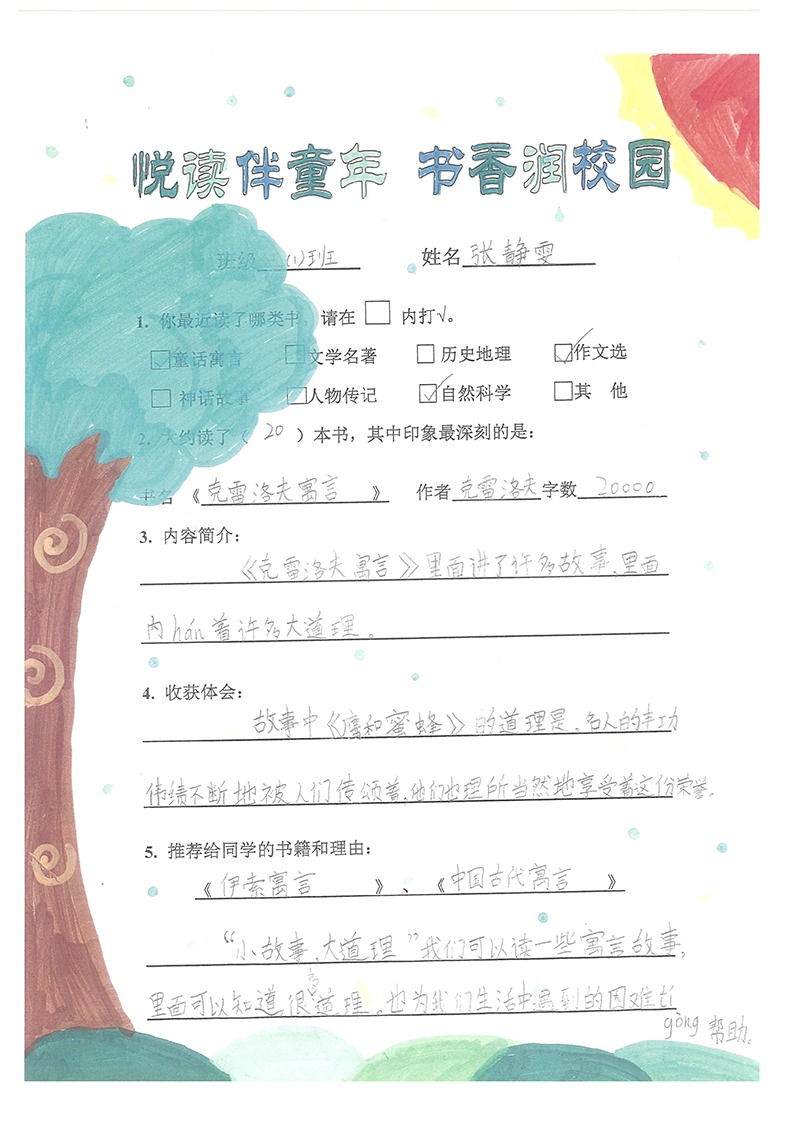 悦读伴童年 书香润校园
班级 (1)班 姓名 张静雯
1. 你最近读了哪类书 请在 □ 内打√。
☑童话寓言 □文学名著 □历史地理 ☑作文选
□神话故事 □人物传记 ☑自然科学 □其 他
2. 大约读了( 20 )本书,其中印象最深刻的是:
书名《克雷洛夫寓言》 作者 克雷洛夫 字数 20000
3. 内容简介:
《克雷洛夫寓言》里面讲了许多故事,里面
内hán着许多大道理。
4. 收获体会:
故事中《鹰和蜜蜂》的道理是,名人的丰功
伟绩不断地被人们传颂着,他们也理所当然地享受着这份荣誉。
5. 推荐给同学的书籍和理由:
《伊索寓言》、《中国古代寓言》
“小故事、大道理”我们可以读一些寓言故事,
里面可以知道很多道理。也为我们生活中遇到的困难
gòng帮助。